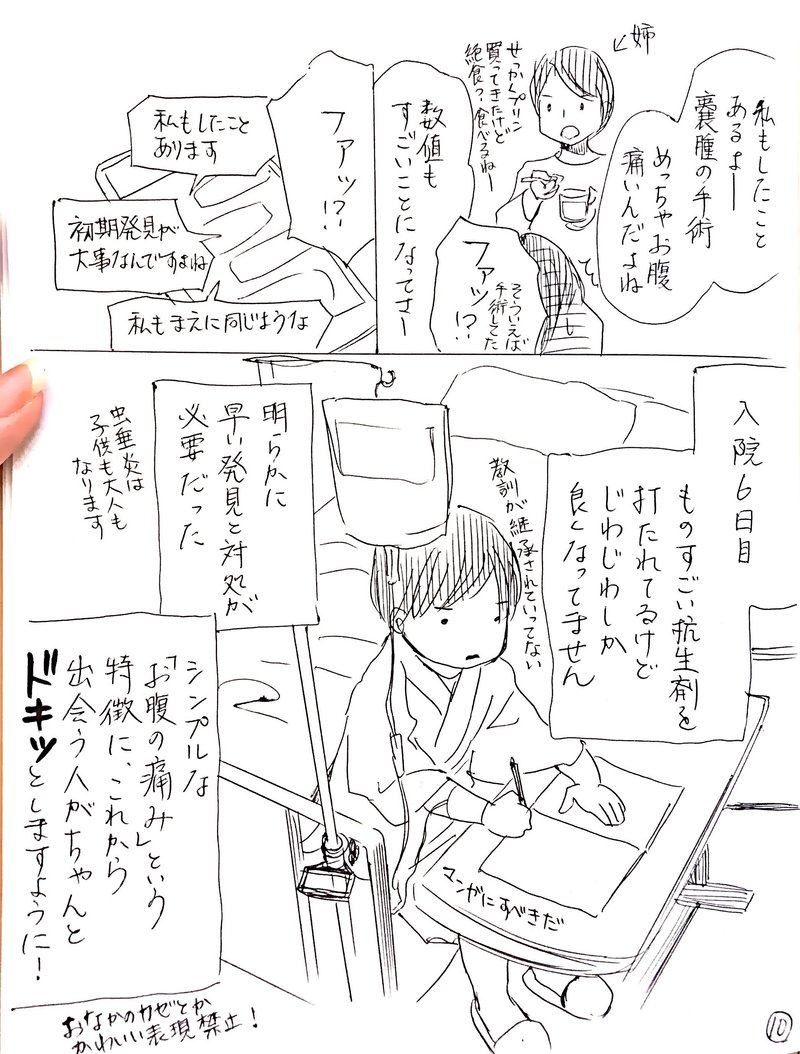 姉
私もしたこと
あるよー
嚢腫の手術
めっちゃお腹
痛いんだよね
せっかくプリン
買ってきたけど
絶食？食べるねー
そういえば
手術してた
ファッ!?
数値も
すごいことになってさー
ファッ!?
私もしたこと
あります
初期発見が
大事なんですよね
私もまえに同じような
入院6日目
ものすごい抗生剤を
打たれてるけど
じわじわしか
良くなってません
教訓が継承されていってない
マンガにすべきだ
明らかに
早い発見と対処が
必要だった
虫垂炎は
子供も大人も
なります
シンプルな
「お腹の痛み」という
特徴に、これから
出会う人がちゃんと
ドキッとしますように！
おなかのカゼとか
かわいい表現禁止！
10